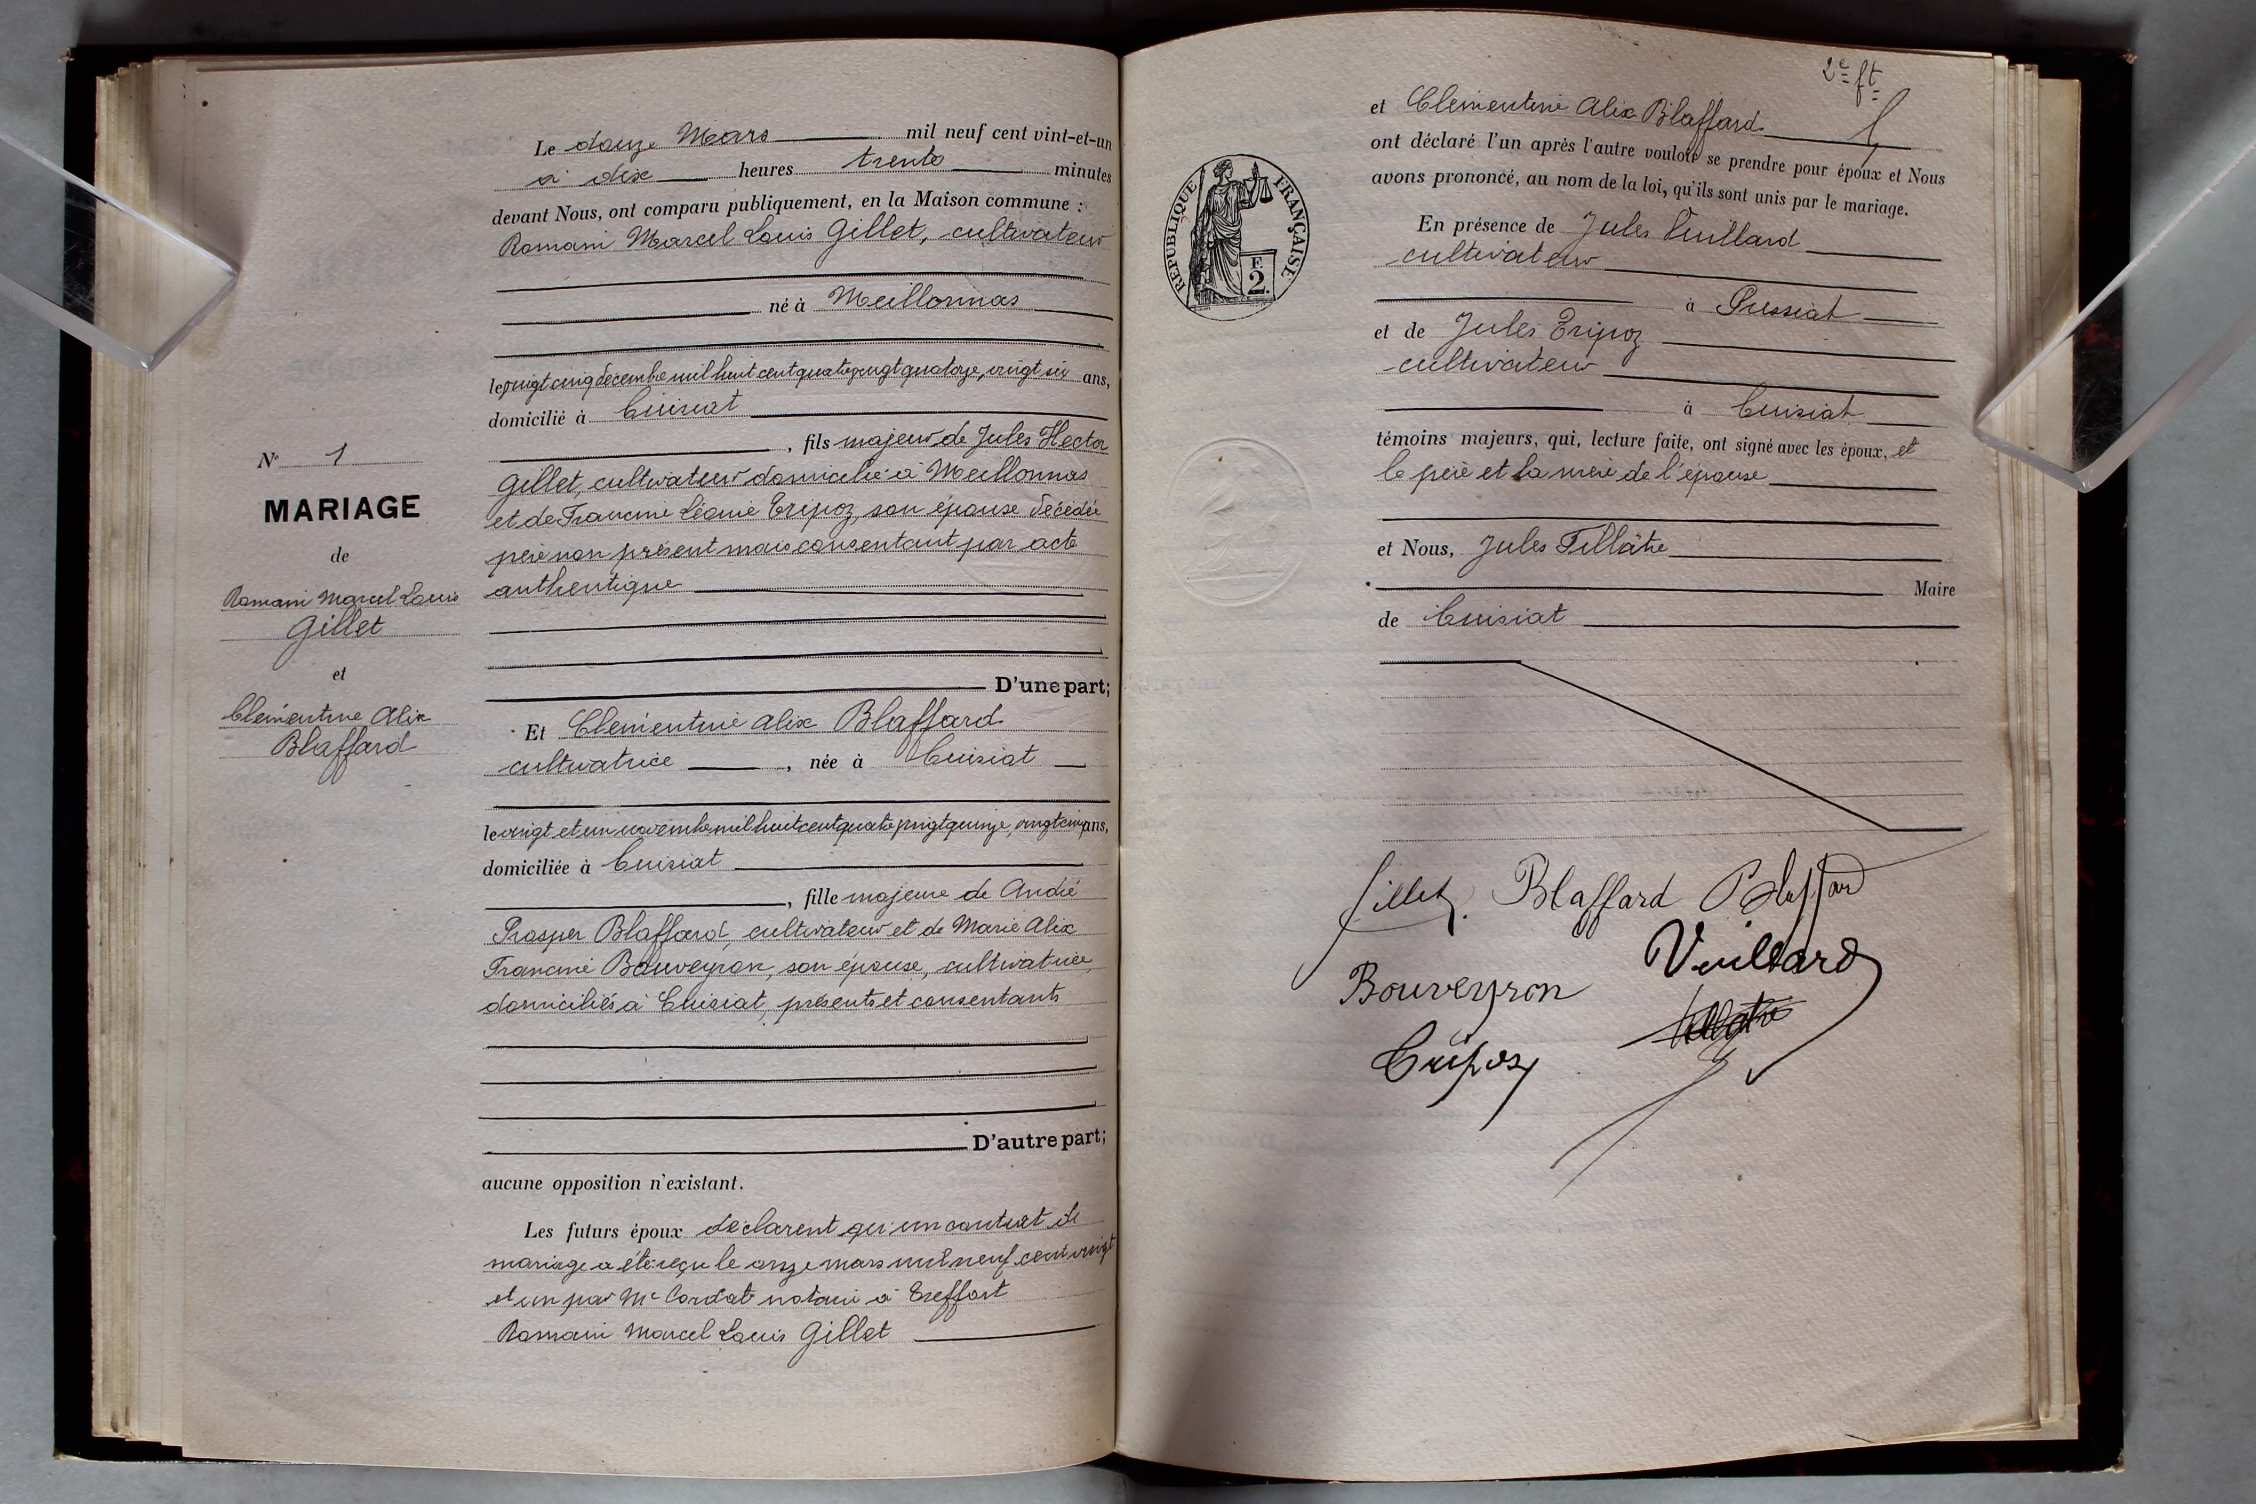 Le douze Mars mil neuf cent vint-et-un
à dix heures trente minutes
devant Nous, ont comparu publiquement, en la Maison commune :
Romain Marcel Louis Gillet, cultivateur
né à Meillonnas
le vingt cinq décembre mil huit cent quatre vingt quatorze, vingt six ans,
domicilié à Cuisiat
, fils majeur de Jules Hector
Gillet, cultivateur domicilié à Meillonnas
et de Francine Léonie Tripoz, son épouse décédée
père non présent mais consentant par acte
authentique
D'une part;
N° 1
MARIAGE
de
Romain Marcel Louis
Gillet
et
Clémentine Alix
Blaffard
Et Clémentine Alix Blaffard
cultivatrice , née à Cuisiat
le vingt et un novembre mil huit cent quatre vingt quinze, vingt cinq ans,
domiciliée à Cuisiat
, fille majeure de André
Prosper Blaffard, cultivateur et de Marie Alix
Francine Bouveyron, son épouse, cultivatrice,
domiciliés à Cuisiat, présents et consentants
D'autre part;
aucune opposition n'existant.
Les futurs époux déclarent qu'un contrat de
mariage a été reçu le onze mars mil neuf cent vingt
et un par Me Cordat notaire à Treffort
Romain Marcel Louis Gillet
2e ft
et Clémentine Alix Blaffard
ont déclaré l'un après l'autre vouloir se prendre pour époux et Nous
avons prononcé, au nom de la loi, qu'ils sont unis par le mariage.
RÉPUBLIQUE FRANÇAISE
F.
2.
En présence de Jules Vuillard
cultivateur
à Pressiat
et de Jules Tripoz
cultivateur
à Cuisiat
témoins majeurs, qui, lecture faite, ont signé avec les époux, et
le père et la mère de l'épouse
et Nous, Jules Tillâtre
Maire
de Cuisiat
Gillet. Blaffard Blaffard
Bouveyron Vuillard
Tripoz Tillâtre